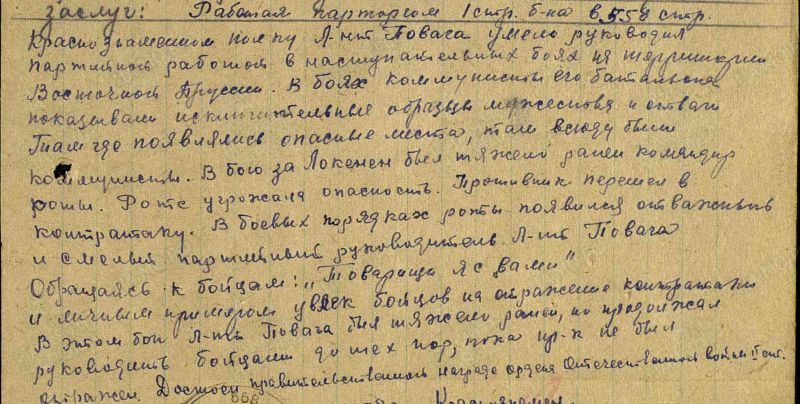 заслуг: Работая парторгом 1 стр. б-на в 558 стр.
Краснознаменном полку Л-нт Повага умело руководил
партийной работой в наступательных боях на территории
Восточной Пруссии. В боях коммунисты его батальона
показывали исключительные образцы мужества и отваги
Там где появлялись опасные места, там всюду были
коммунисты. В бою за Локенен был тяжело ранен командир
роты. Роте угрожала опасность. Противник перешел в
контратаку. В боевых порядках роты появился отважный
и смелый партийный руководитель Л-нт Повага
Обращаясь к бойцам: "Товарищи я с вами"
и личным примером увлек бойцов на отражение контратаки
В этом бою Л-нт Повага был тяжело ранен, но продолжал
руководить бойцами до тех пор, пока пр-к не был
отражен. Достоин правительственной награде ордена Отечественной войны II ст.
558